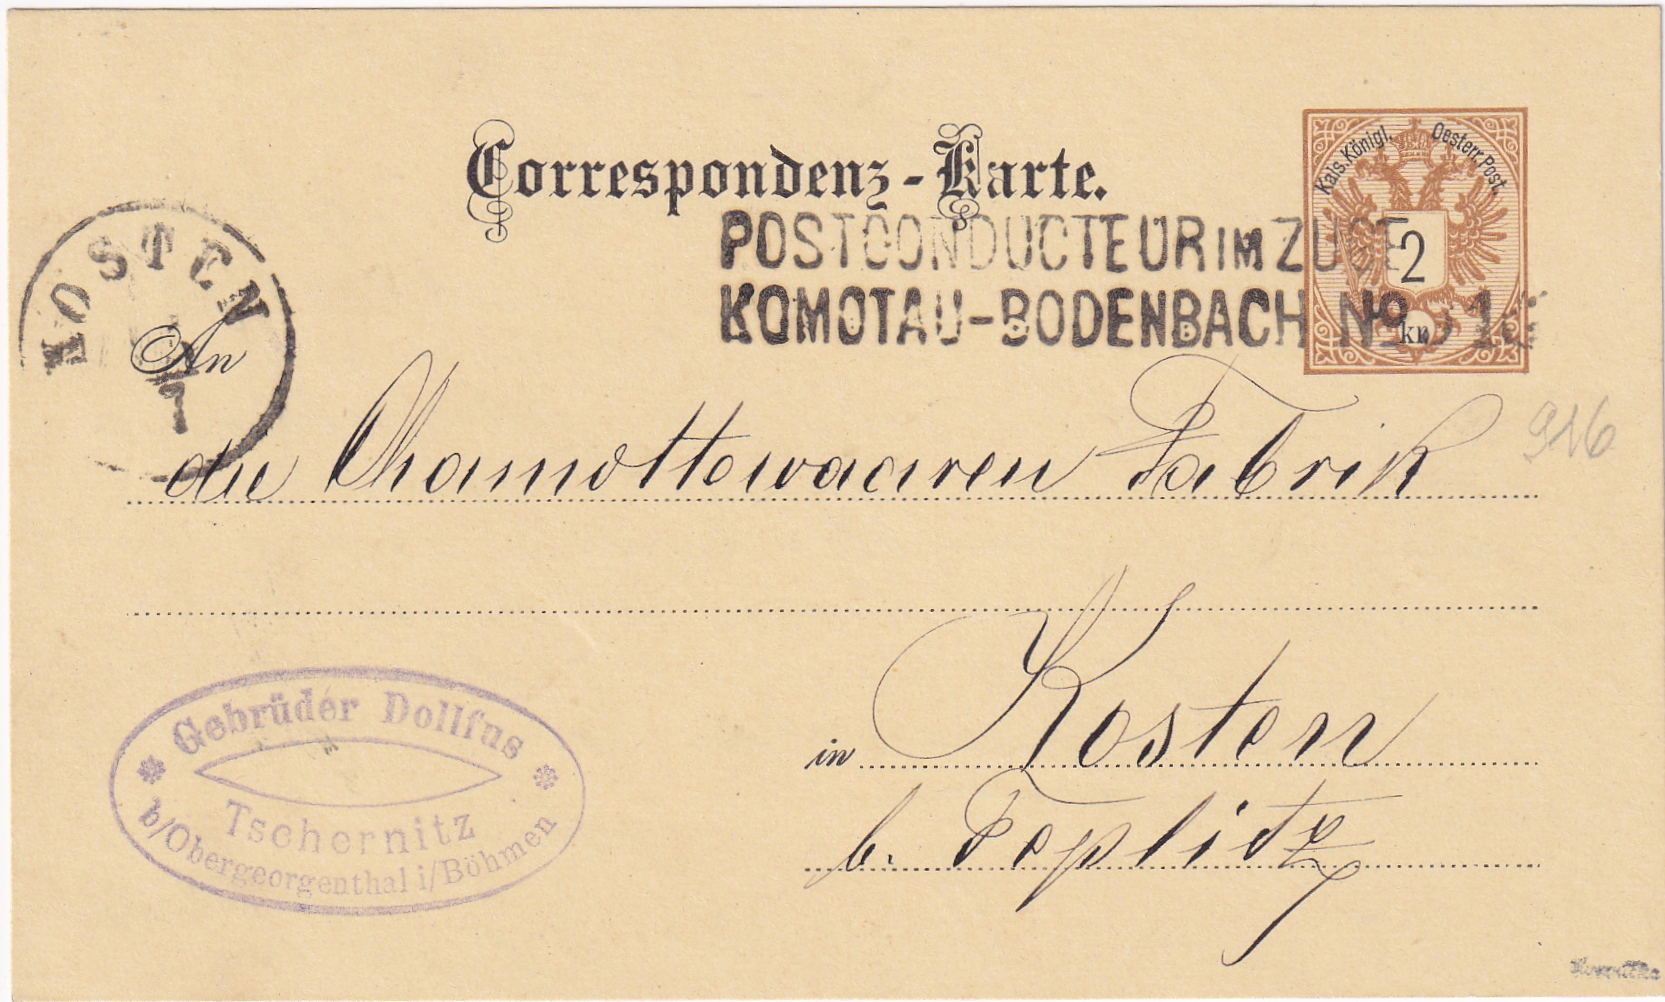 Correspondenz-Karte.
Kais. Königl. Oesterr. Post.
2
kr
POSTCONDUCTEUR IM ZUGE
KOMOTAU-BODENBACH No
KOSTEN
7
An
die Chamottewaaren Fabrik
916
in Kosten
b. Teplitz
Gebrüder Dollfus
Tschernitz
b/Obergeorgenthal i/Böhmen